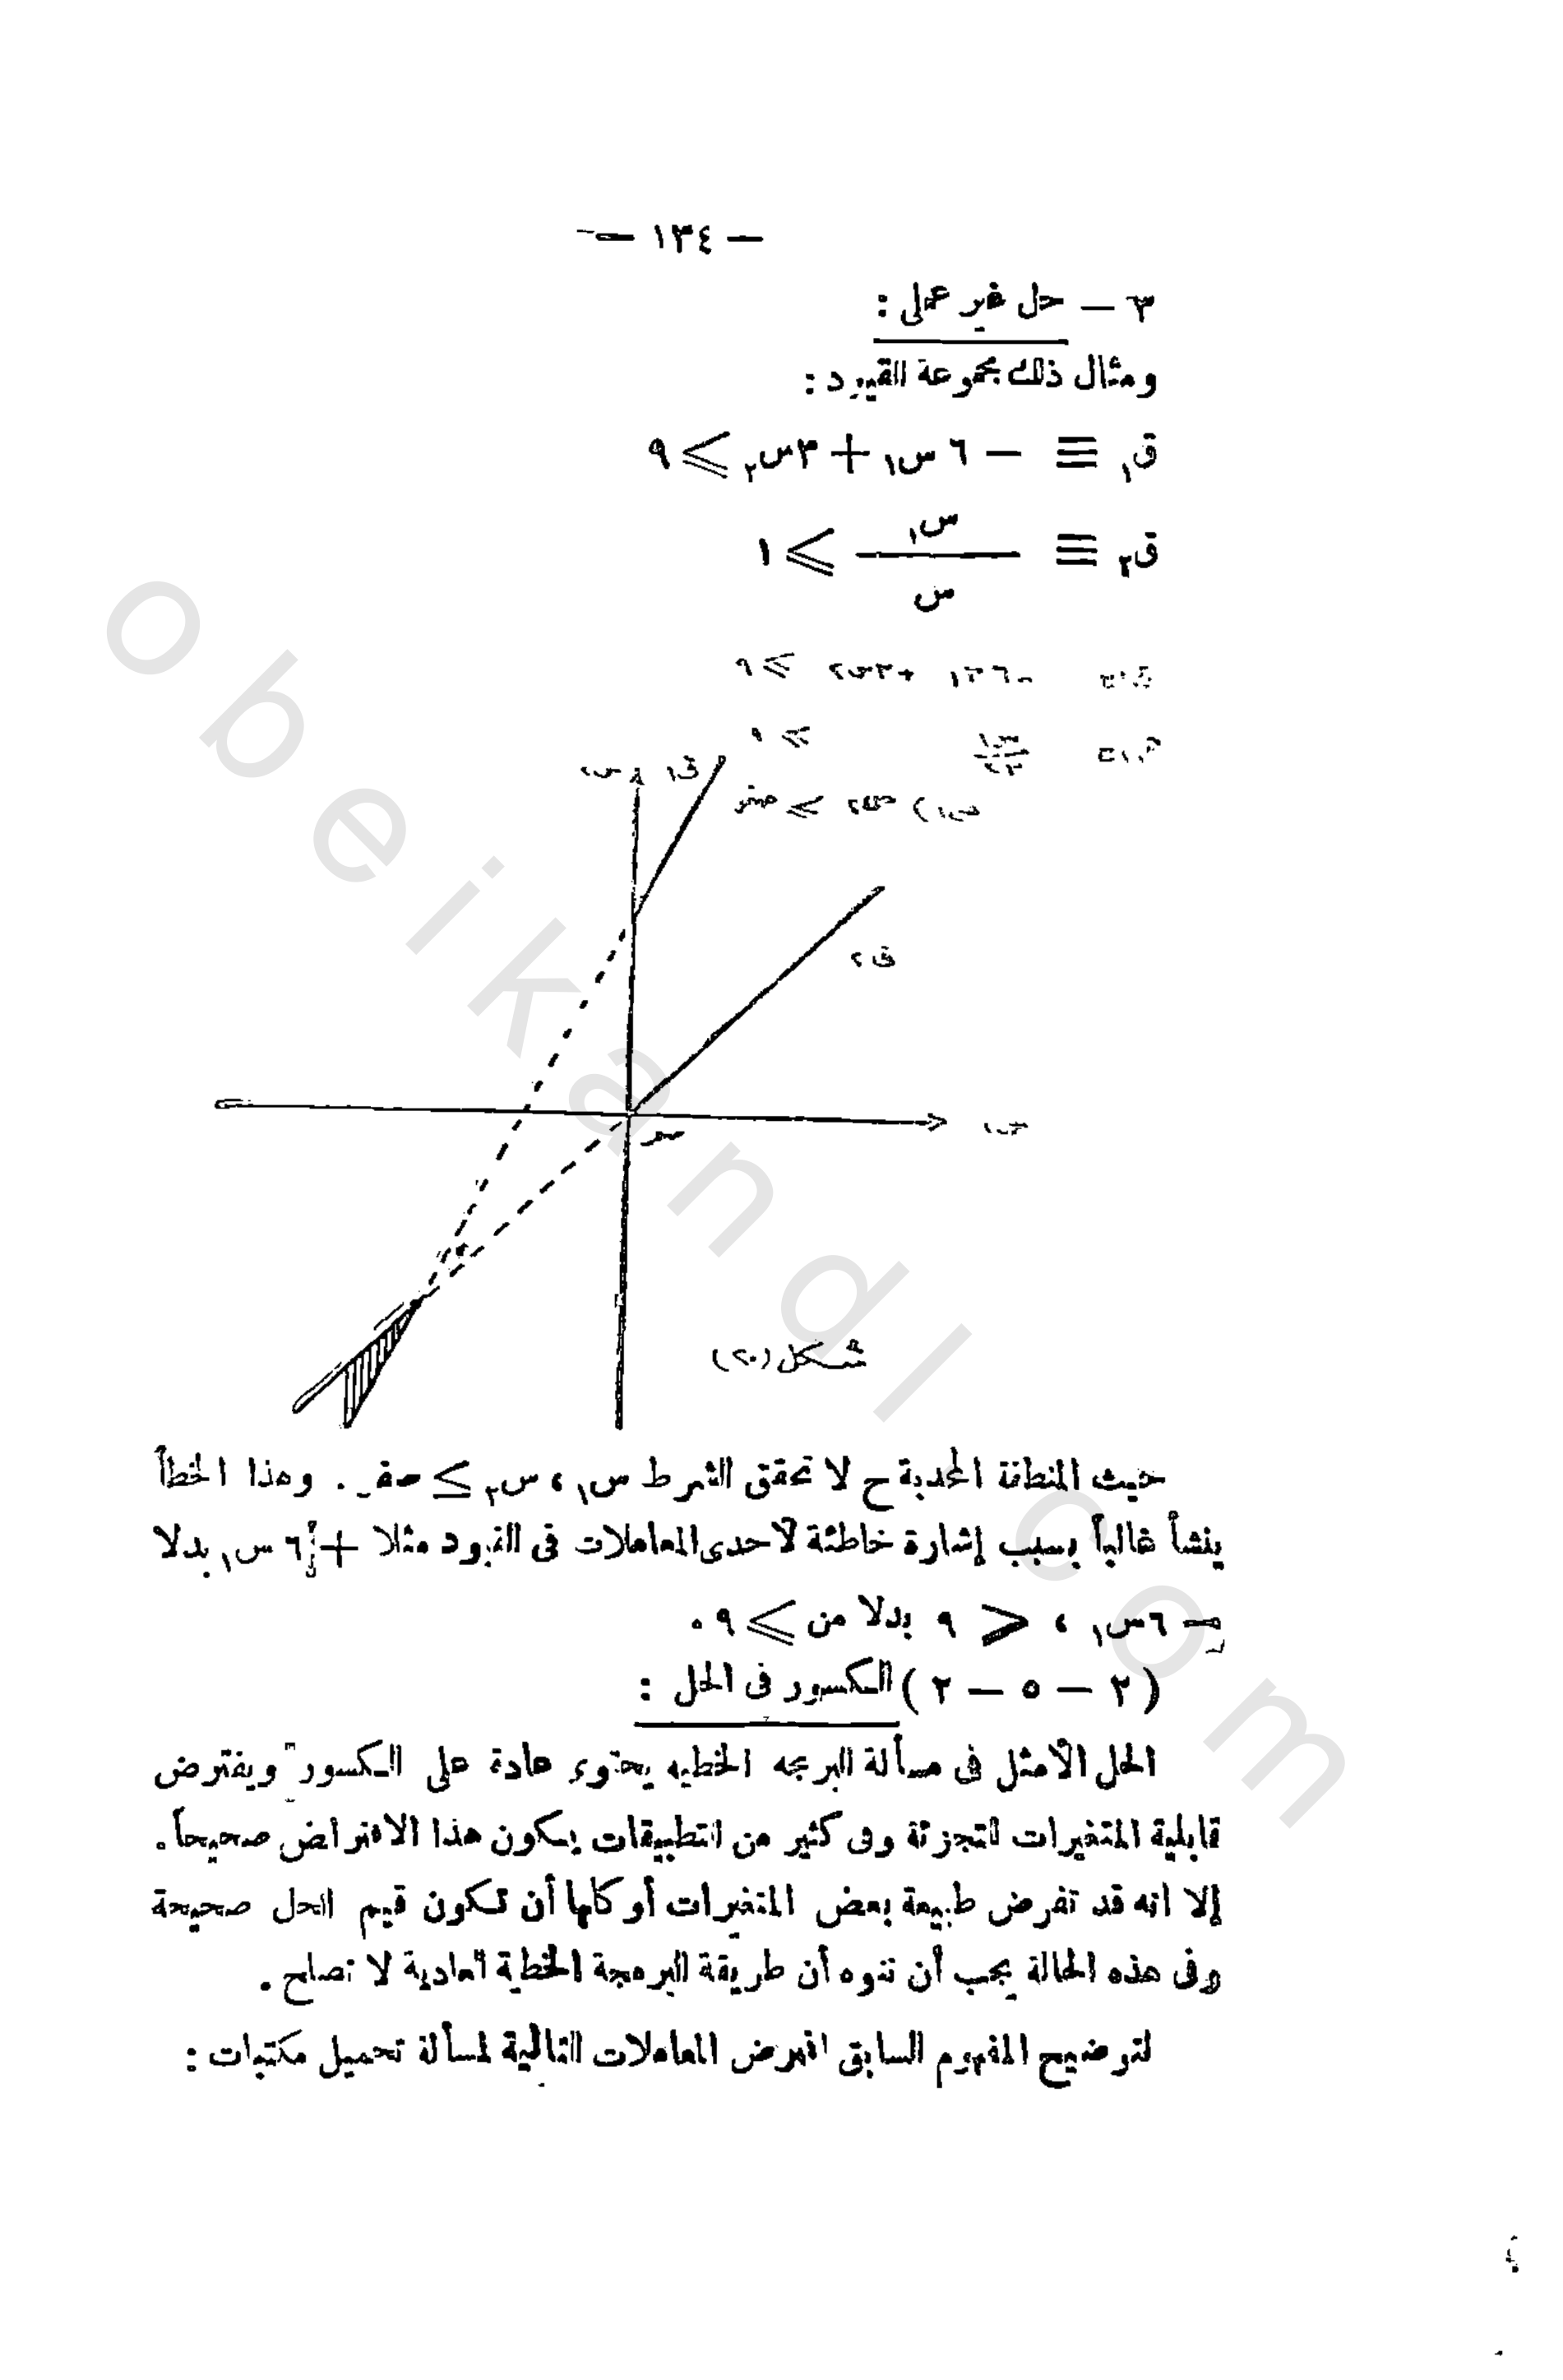 — ١٣٤ —
٣ — حل غير عملى :
ومثال ذلك مجموعة القيود :
ق١ ≡ — ٦ س١ + ٣س٢ ⩾ ٩
ق٢ ≡ س١ / س ⩾ ١
-٦س١ +٣س٢ ⩾ ٩
⩾ ٩
س١، س٢ ⩾ صفر
س٢ ق١
ق٢
س١
صفر
شكل (٢٠)
حيث المنطقة المحدبة ح لا تحقق الشرط س١ ، س٢ ≥ صفر . وهذا الخطأ
ينشأ غالباً بسبب إشارة خاطئة لأحدى المعاملات فى القيود مثلا + ٦ س١ بدلا
— ٦س١ ، < ٩ بدلا من ⩾ ٩ .
(٢ — ٥ — ٢) الكسور فى الحل :
الحل الأمثل فى مسألة البرمجه الخطيه يحتوى عادة على الكسور ويفترض
قابلية المتغيرات للتجزئة وفى كثير من التطبيقات يكون هذا الافتراض صحيحاً .
إلا انه قد تفرض طبيعة بعض المتغيرات أو كلها أن تكون قيم الحل صحيحة
وفى هذه الحالة يجب أن ننوه أن طريقة البرمجة الخطية العادية لا تصلح .
لتوضيح المفهوم السابق افرض المعاملات التالية لمسألة تحميل مكتبات :
obeikandl.com